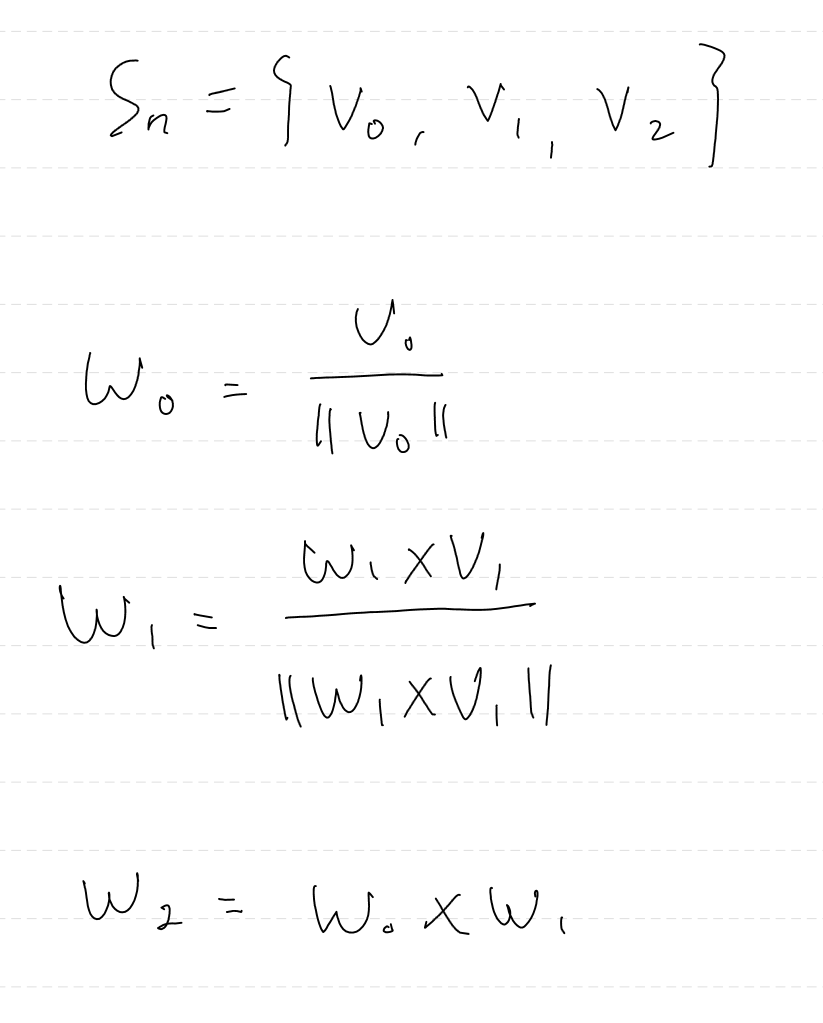 Sₙ = { V₀, V₁, V₂ }
W₀ = V₀ / ‖V₀‖
W₁ = W₁ × V₁ / ‖W₁ × V₁‖
W₂ = W₀ × W₁